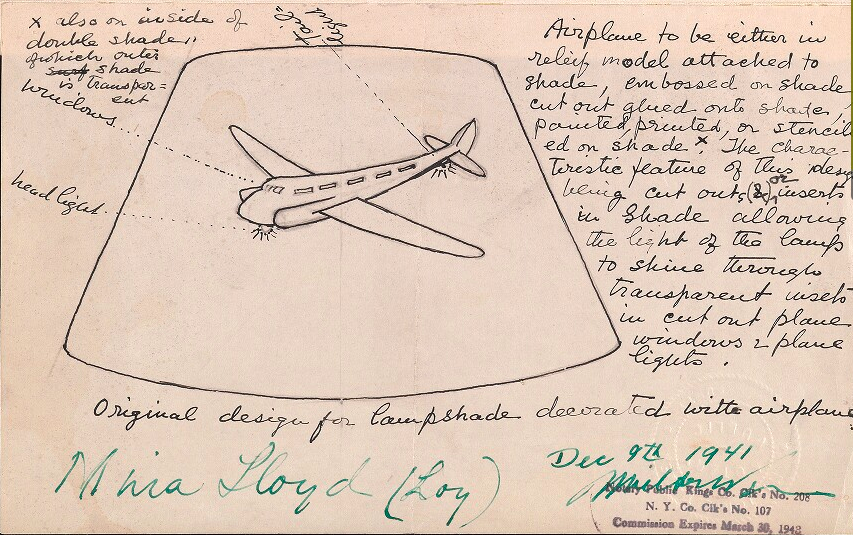 x also on inside of
double shade,,
of which outer
surf shade
is transpar=
ent
windows
head light
tail=
light
Airplane to be either in
relief model attached to
shade, embossed on shade
cut out glued onto shade,
painted, printed, or stencil
ed on shade. x The charac-
teristic feature of this design
being cut outs, or inserts
in shade allowing
the light of the lamp
to shine through
transparent insets
in cut out plane
windows & plane
lights.
Original design for lampshade decorated with airplane
Mina Lloyd (Loy)
Dec 9th 1941
Notary Public Kings Co. Clk's No. 208
N. Y. Co. Clk's No. 107
Commission Expires March 30, 1942